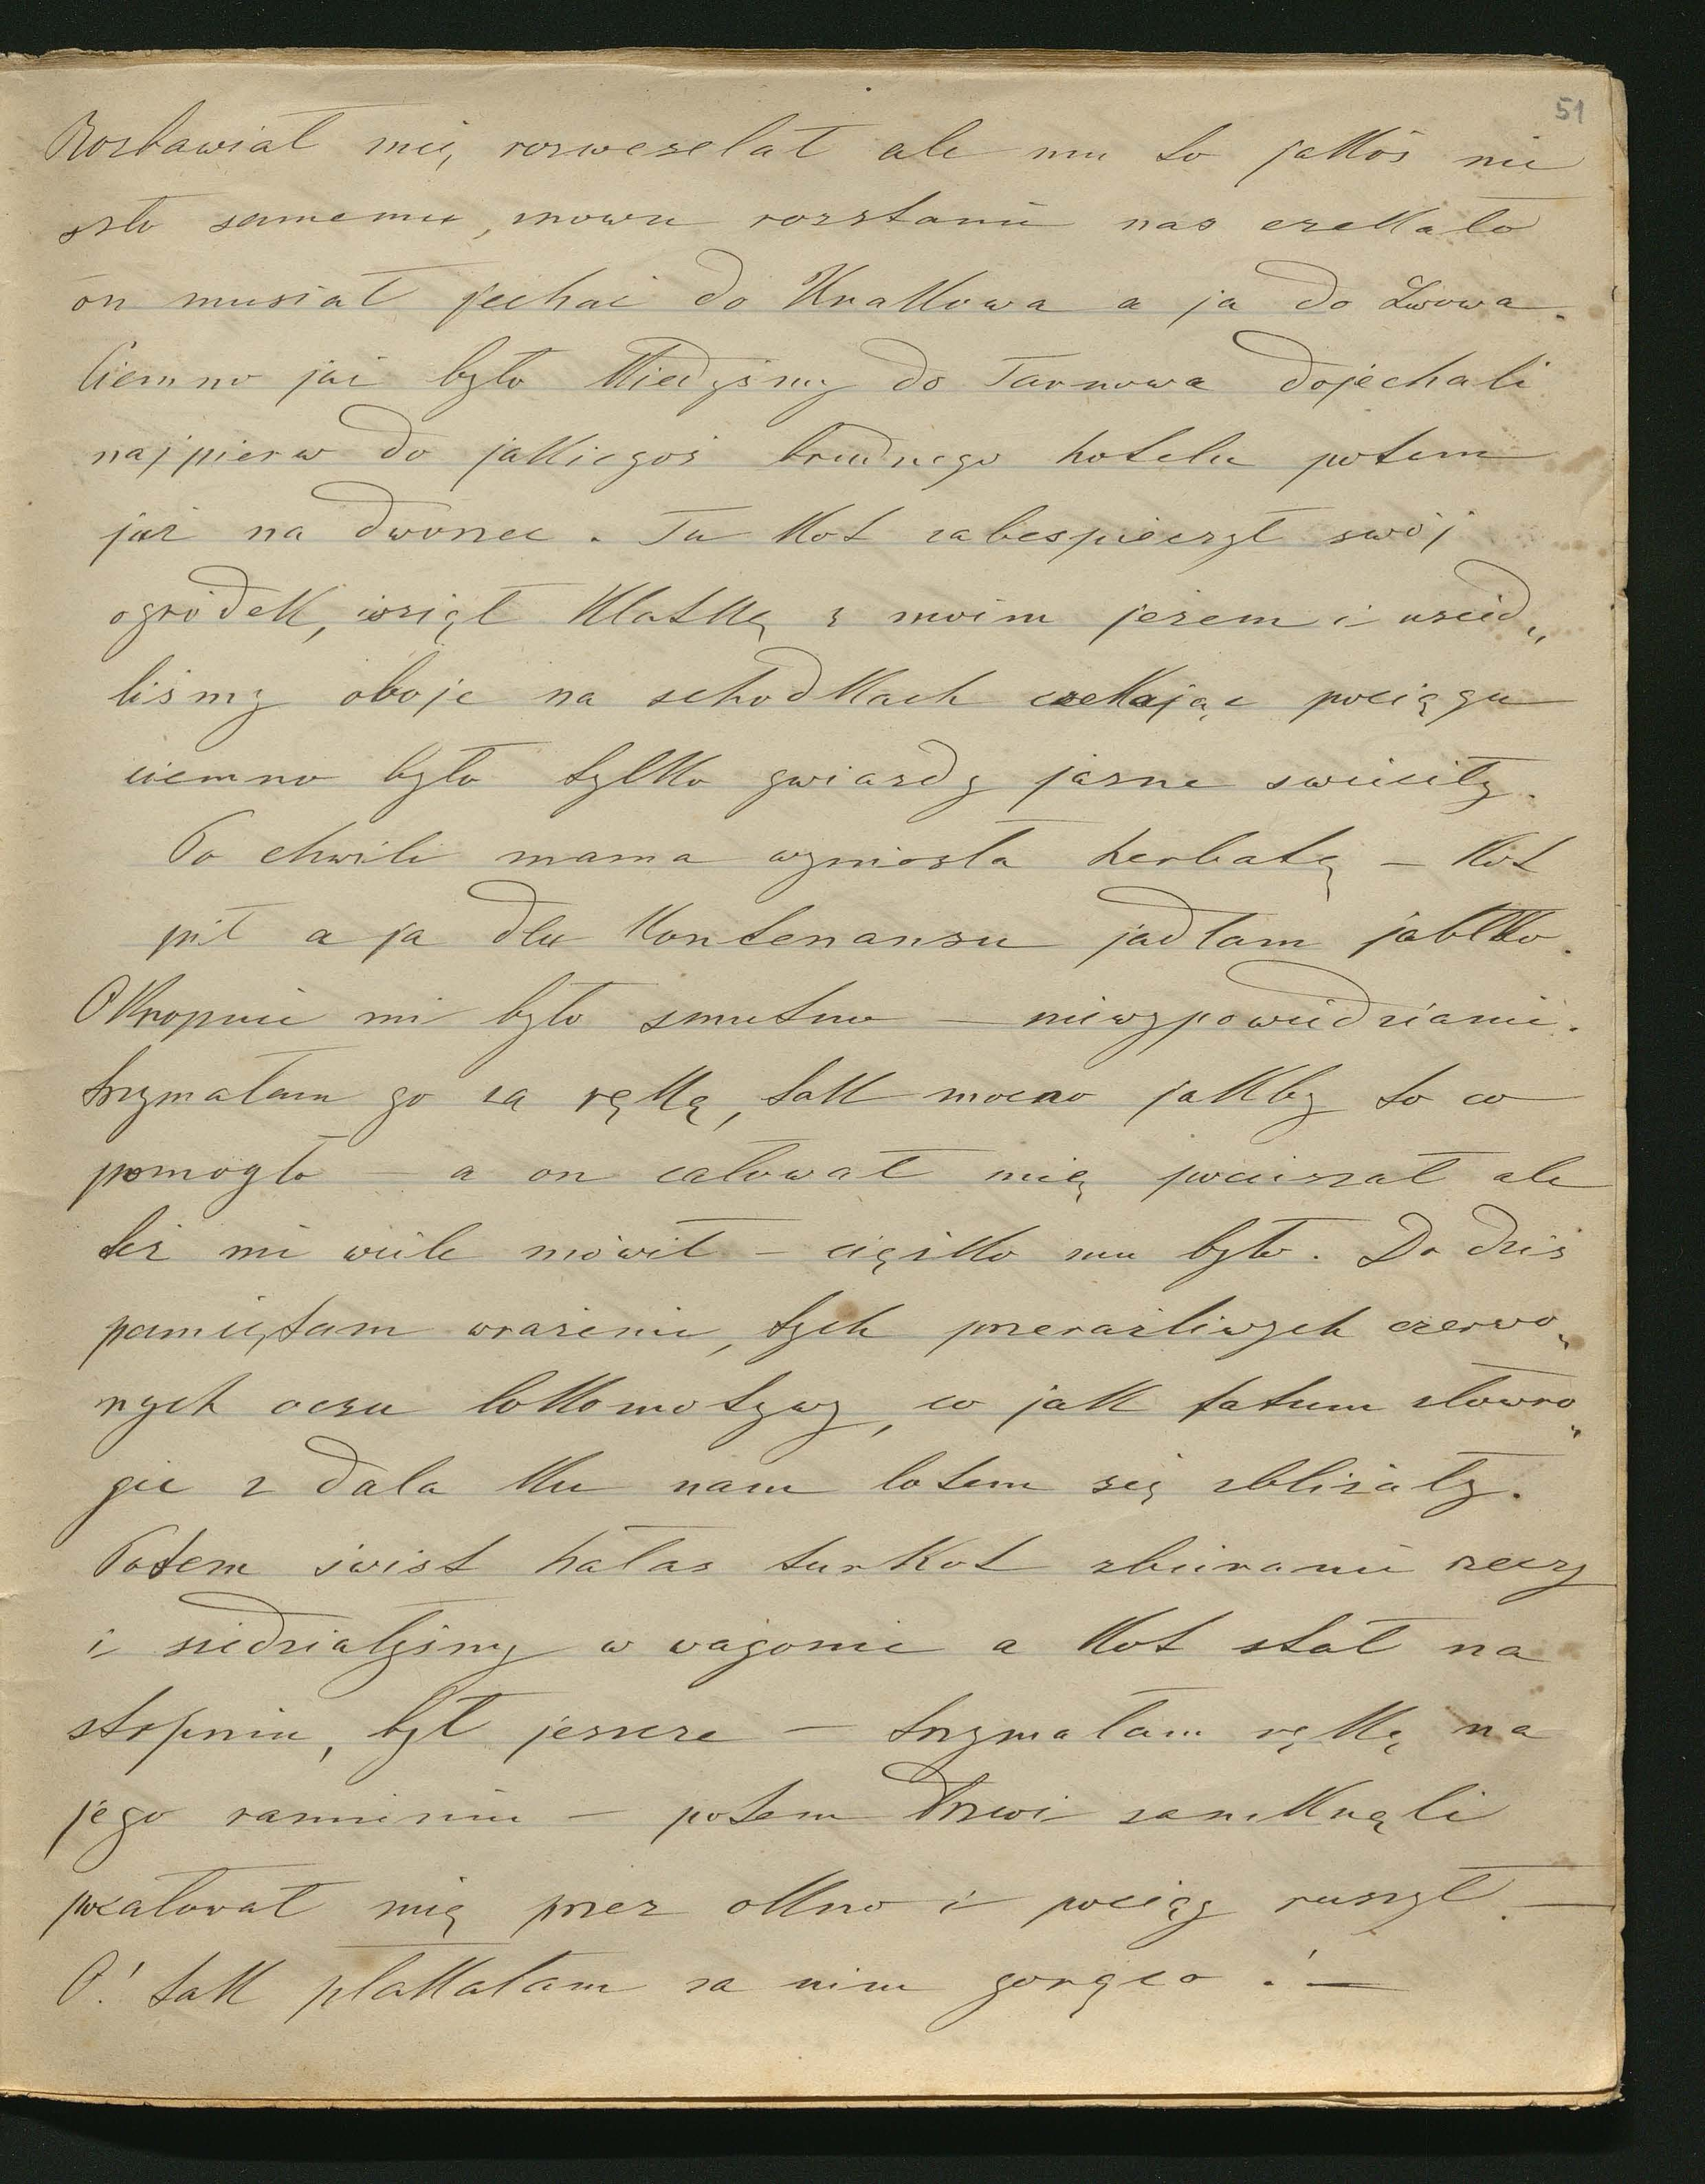 51
Rozbawiał mię, rozweselał ale mu to jakóś nie
szło samemu, znowu rozstanie nas czekało
on musiał jechać do Krakowa a ja do Lwowa.
Ciemno już było kiedyśmy do Tarnowa dojechali
najpierw do jakiegoś brudnego hotelu potem
już na dworzec. Tu Kot zabespieczył swój
ogródek, wziął klatkę z moim jeżem i usied„
liśmy oboje na schodkach czekając pociągu
ciemno było tylko gwiazdy jasne świeciły.
Po chwili mama wyniosła herbatę – Kot
pił a ja dla kontenansu jadłam jabłko.
Okropnie mi było smutno – niewypowiedzianie.
trzymałam go za rękę, tak mocno jakby to co
pomogło – a on całował mię pocieszał ale
też nie wiele mówił – ciężko mu było. Do dziś
pamiętam wrażenie, tych przeraźliwych czerwo„
nych oczu lokomotywy, co jak fatum złowro„
gie z dala ku nam lotem się zbliżały.
Potem świst hałas turkot zbieranie rzeczy
i siedziałyśmy w wagonie a Kot stał na
stopniu, był jeszcze – trzymałam rękę na
jego ramieniu – potem drzwi zamknęli
pocałował mię przez okno i pociąg ruszył. —
O! tak płakałam za nim gorąco! —